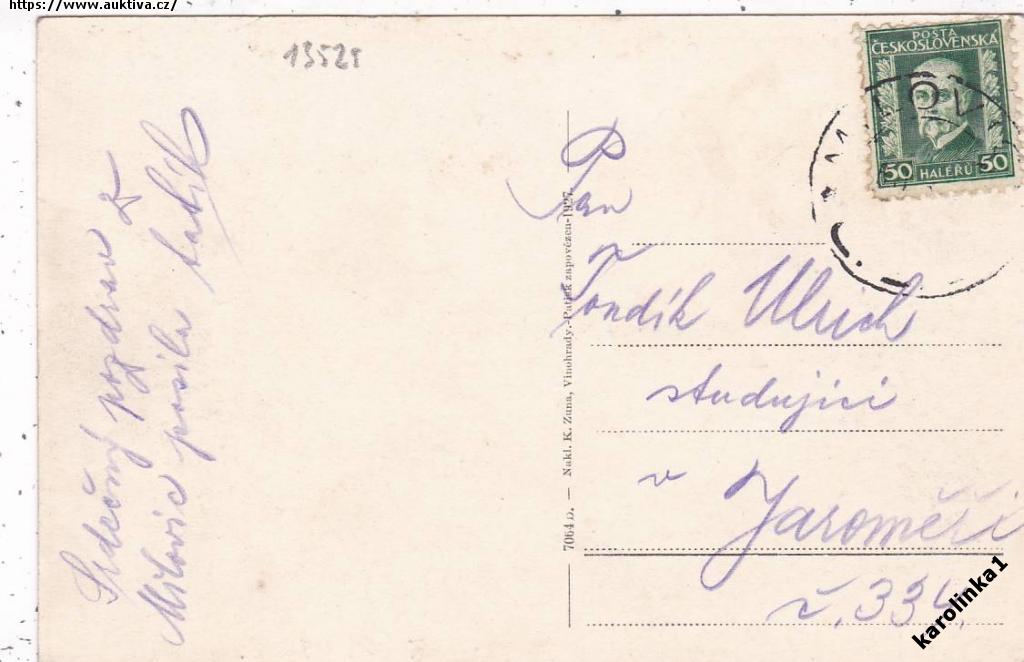 https://www.auktiva.cz/
13525
Srdečný pozdrav z
Milovic posílá tatík
7064 D. — Nakl. K. Zuna, Vinohrady.-Patisk zapovězen-1927
POŠTA
ČESKOSLOVENSKÁ
50 HALÉŘŮ 50
Pan
Tondík Ulrich
studující
v Jaroměři
č. 334.
karolinka1